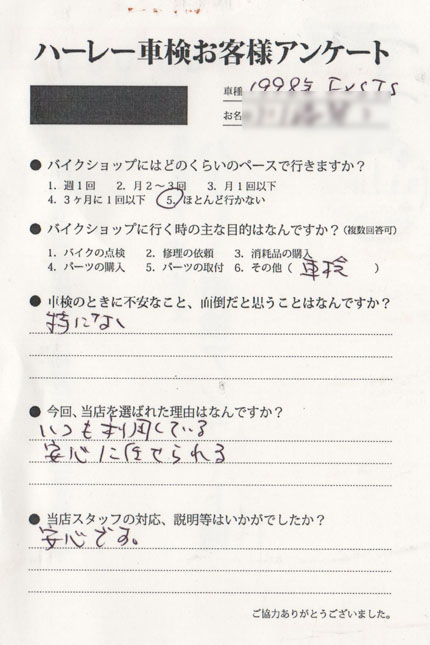 ハーレー車検お客様アンケート
車種 1998年 FXSTS
お名
● バイクショップにはどのくらいのペースで行きますか？
1. 週1回 2. 月2〜3回 3. 月1回以下
4. 3ヶ月に1回以下 5. ほとんど行かない
● バイクショップに行く時の主な目的はなんですか？(複数回答可)
1. バイクの点検 2. 修理の依頼 3. 消耗品の購入
4. パーツの購入 5. パーツの取付 6. その他（ 車検 ）
● 車検のときに不安なこと、面倒だと思うことはなんですか？
特にない
● 今回、当店を選ばれた理由はなんですか？
いつも利用している
安心に任せられる
● 当店スタッフの対応、説明等はいかがでしたか？
安心です。
ご協力ありがとうございました。